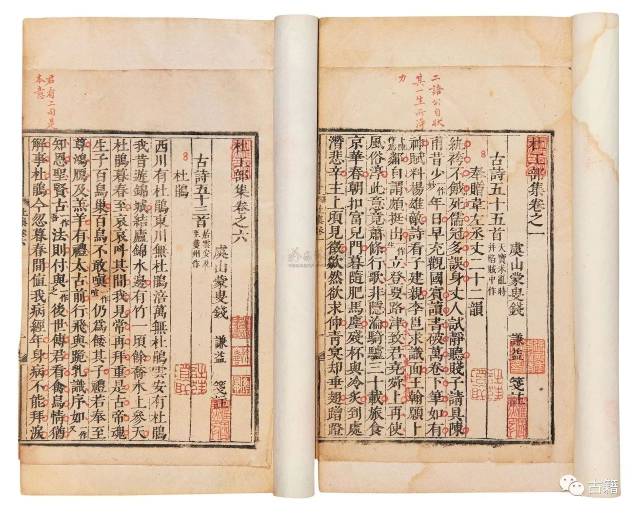 二語公自狀
其一生所得
力
杜工部集卷之一
虞山蒙叟錢 謙益 箋註
古詩五十五首 天寶未亂時
并陷賊中作
奉贈韋左丞丈二十二韻
紈袴不餓死儒冠多誤身丈人試靜聽賤子請具陳
甫昔少年日早充觀國賓讀書破萬卷下筆如有
神賦料揚雄敵詩看子建親李邕求識面王翰願卜
鄰自謂頗挺出立登要路津致君堯舜上再使
風俗淳此意竟蕭條行歌非隱淪騎驢三十載旅食
京華春朝扣富兒門暮隨肥馬塵殘杯與冷炙到處
潛悲辛主上頃見徵歘然欲求伸青冥却垂翅蹭蹬
君看二句是
本意
杜工部集卷之六
虞山蒙叟錢 謙益 箋註
古詩五十三首 居雲安及
至夔州作
杜鵑
西川有杜鵑東川無杜鵑涪萬無杜鵑雲安有杜鵑
我昔遊錦城結廬錦水邊有竹一頃餘喬木上參天
杜鵑暮春至哀哀叫其間我見常再拜重是古帝魂
生子百鳥巢百鳥不敢嗔仍爲餧其子禮若奉至
尊鴻雁及羔羊有禮太古前行飛與跪乳識序如
知恩聖賢古法則付與後世傳君看禽鳥情猶
解事杜鵑今忽暮春間値我病經年身病不能拜淚
古籍